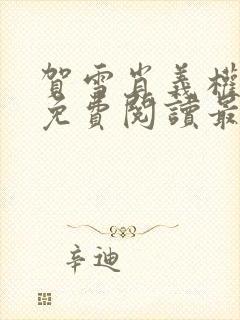 賀雪岩義權
免費閱讀最
辛迪